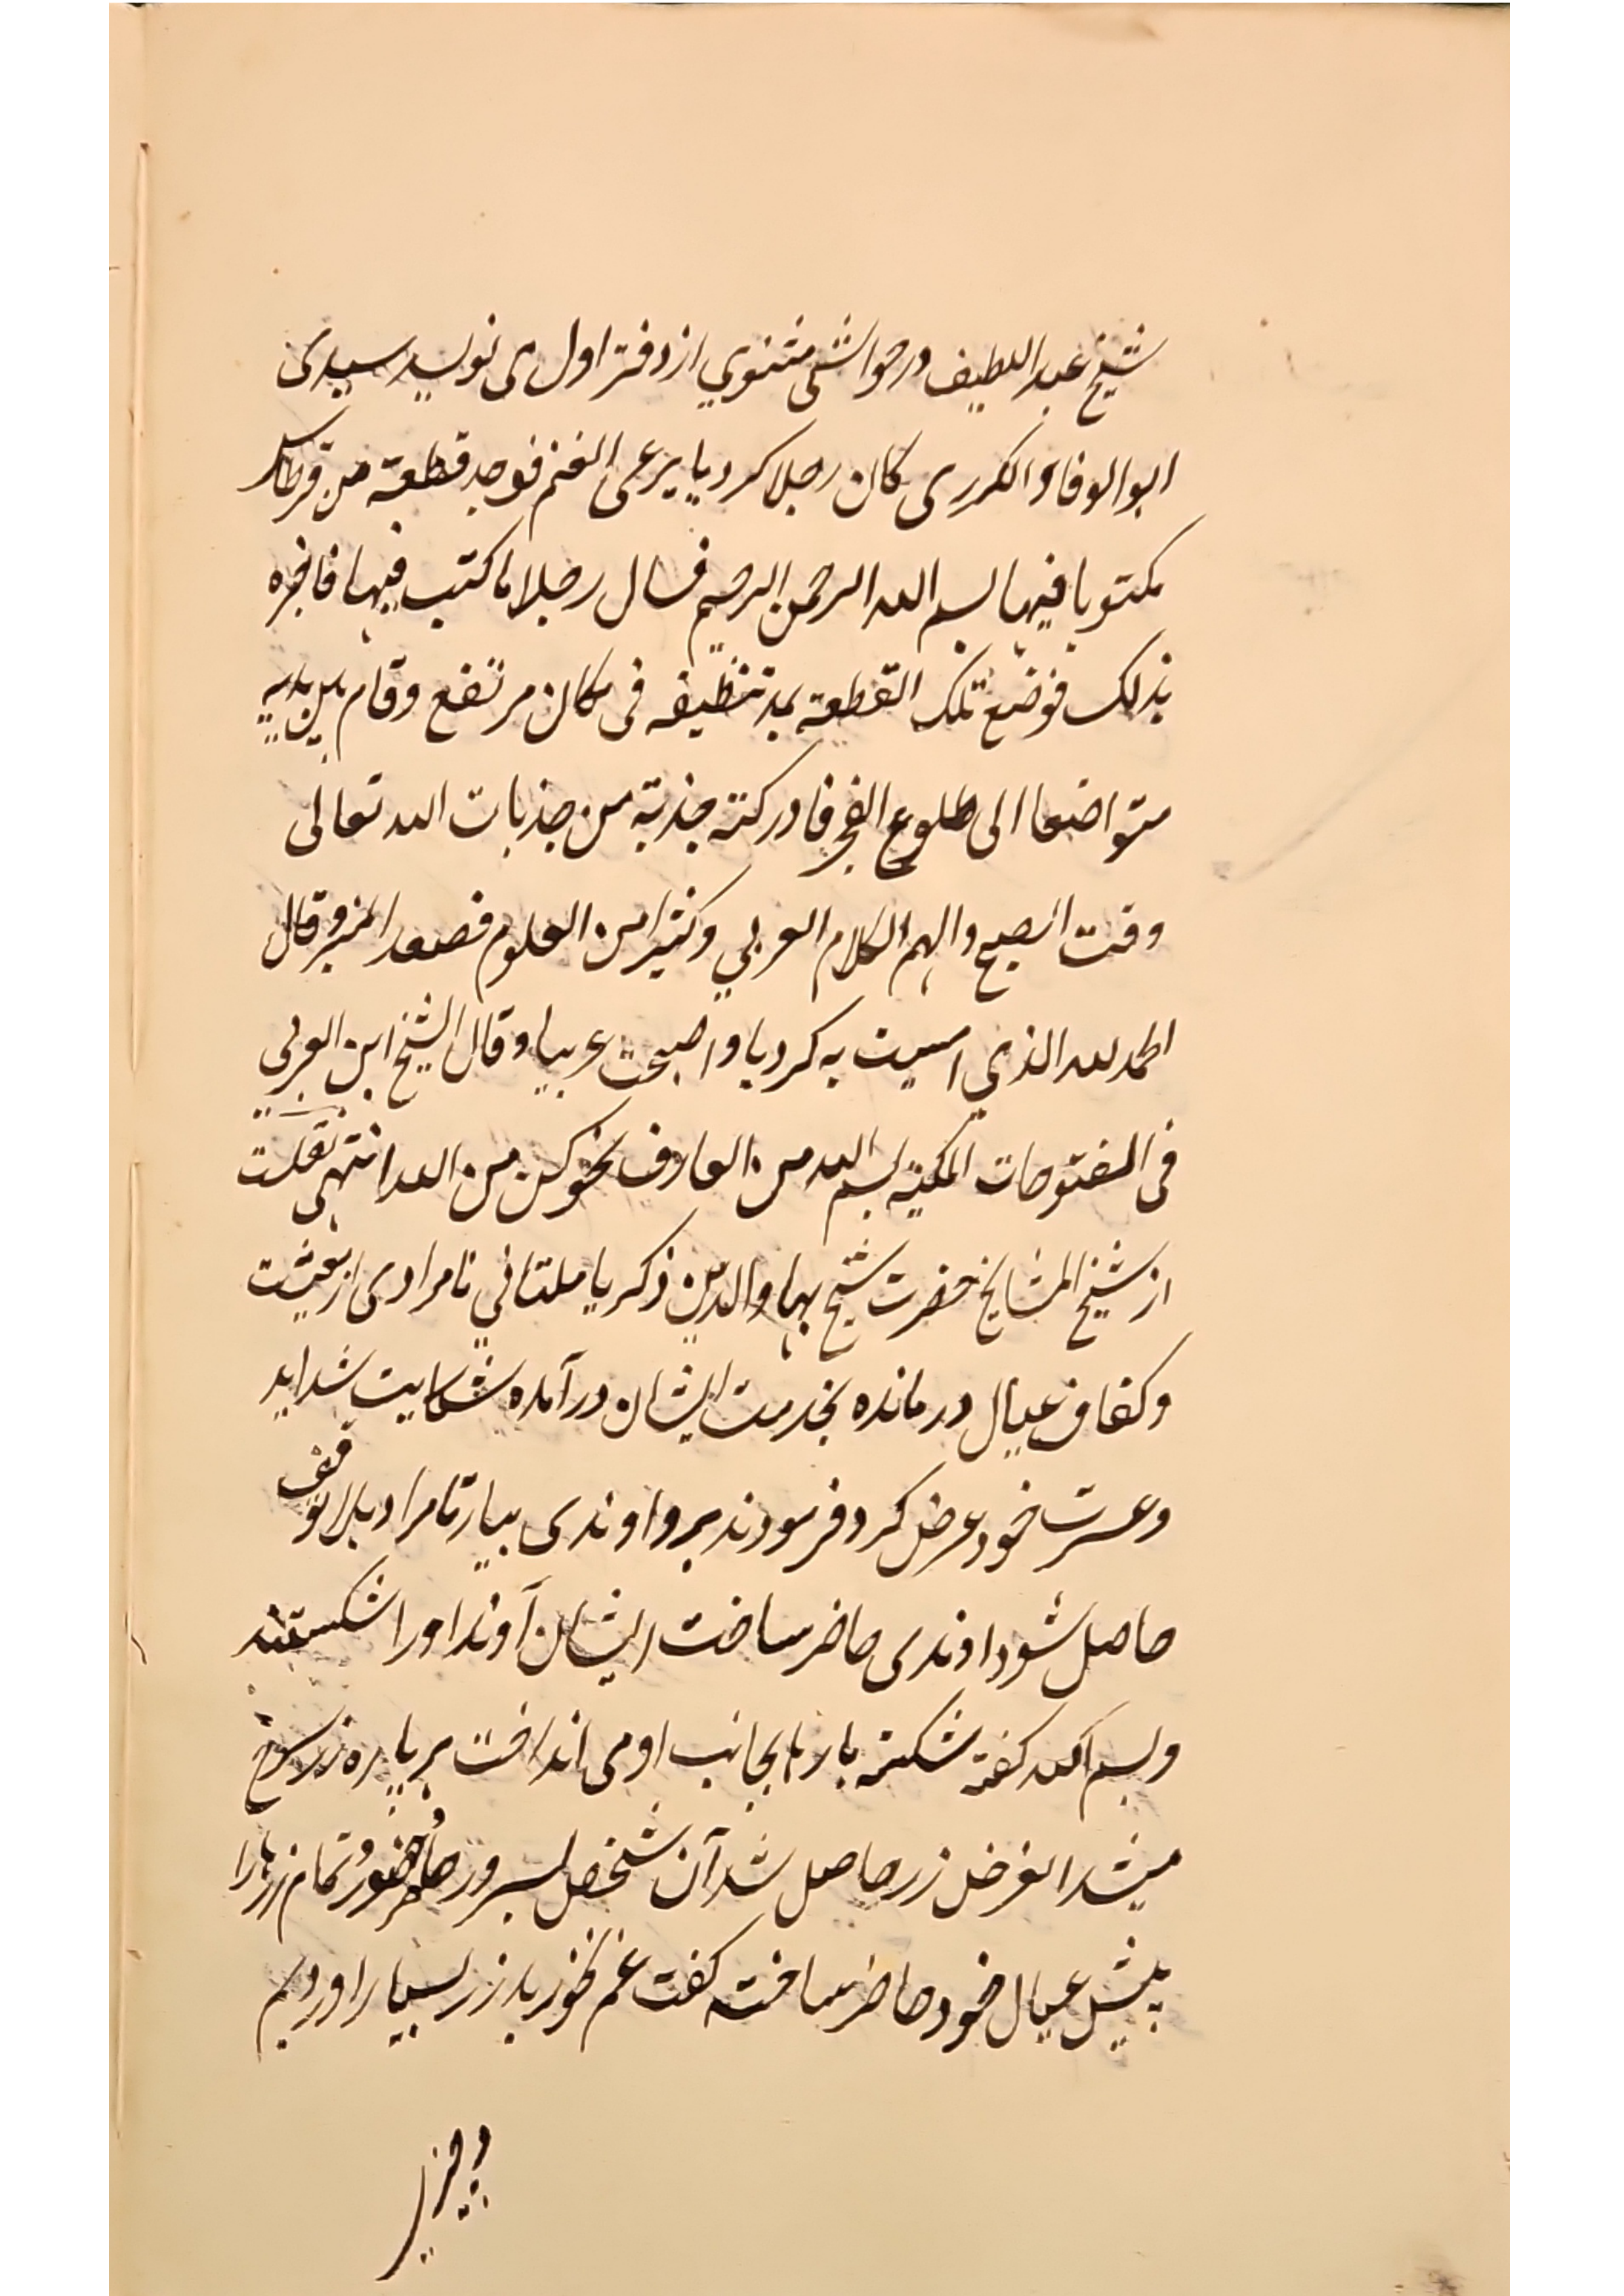 شیخ عبد اللطیف در حواشی مثنوي از دفتر اول می نویسد سیدی
ابو الوفاء الکردی کان رجلا کردیا یرعی الغنم فوجد قطعة من قرطاس
مکتوبا فیها بسم الله الرحمن الرحیم فسال رجلا ما کتب فیها فاخبره
بذلک فوضع تلک القطعة بعد تنظیفه فی مکان مرتفع وقام بین یدیه
متواضعا الی طلوع الفجر فادرکته جذبة من جذبات الله تعالی
وقت الصبح والهم الکلام العربي وکثیرا من العلوم فصعد المنبر وقال
الحمد لله الذي امسیت به کردیا واصبحت عربیا وقال الشیخ ابن العربي
فی الفتوحات المکیة بسم الله من العارف بخو کن من الله انتهی نقلست
از شیخ المشایخ حضرت شیخ بهاو الدین ذکریا ملتاني نامرادی از معیشت
و کفاف عیال درمانده بخدمت ایشان در آمده شکایت شداید
وعسرت خود عرض کرد فرمودند برو اوندی بیار تا مراد بلا توقف
حاصل شود اوندی حاضر ساخت ایشان آوند او را شکستند
وبسم الله کفته شکسته پارها بجانب او می انداخت هر پاره زر سرخ
میشد الغرض زر حاصل شد آن شخص بسرور تمام زرها را
پیش عیال خود حاضر ساخته کفت غم نخورید زر بسیار اوردیم